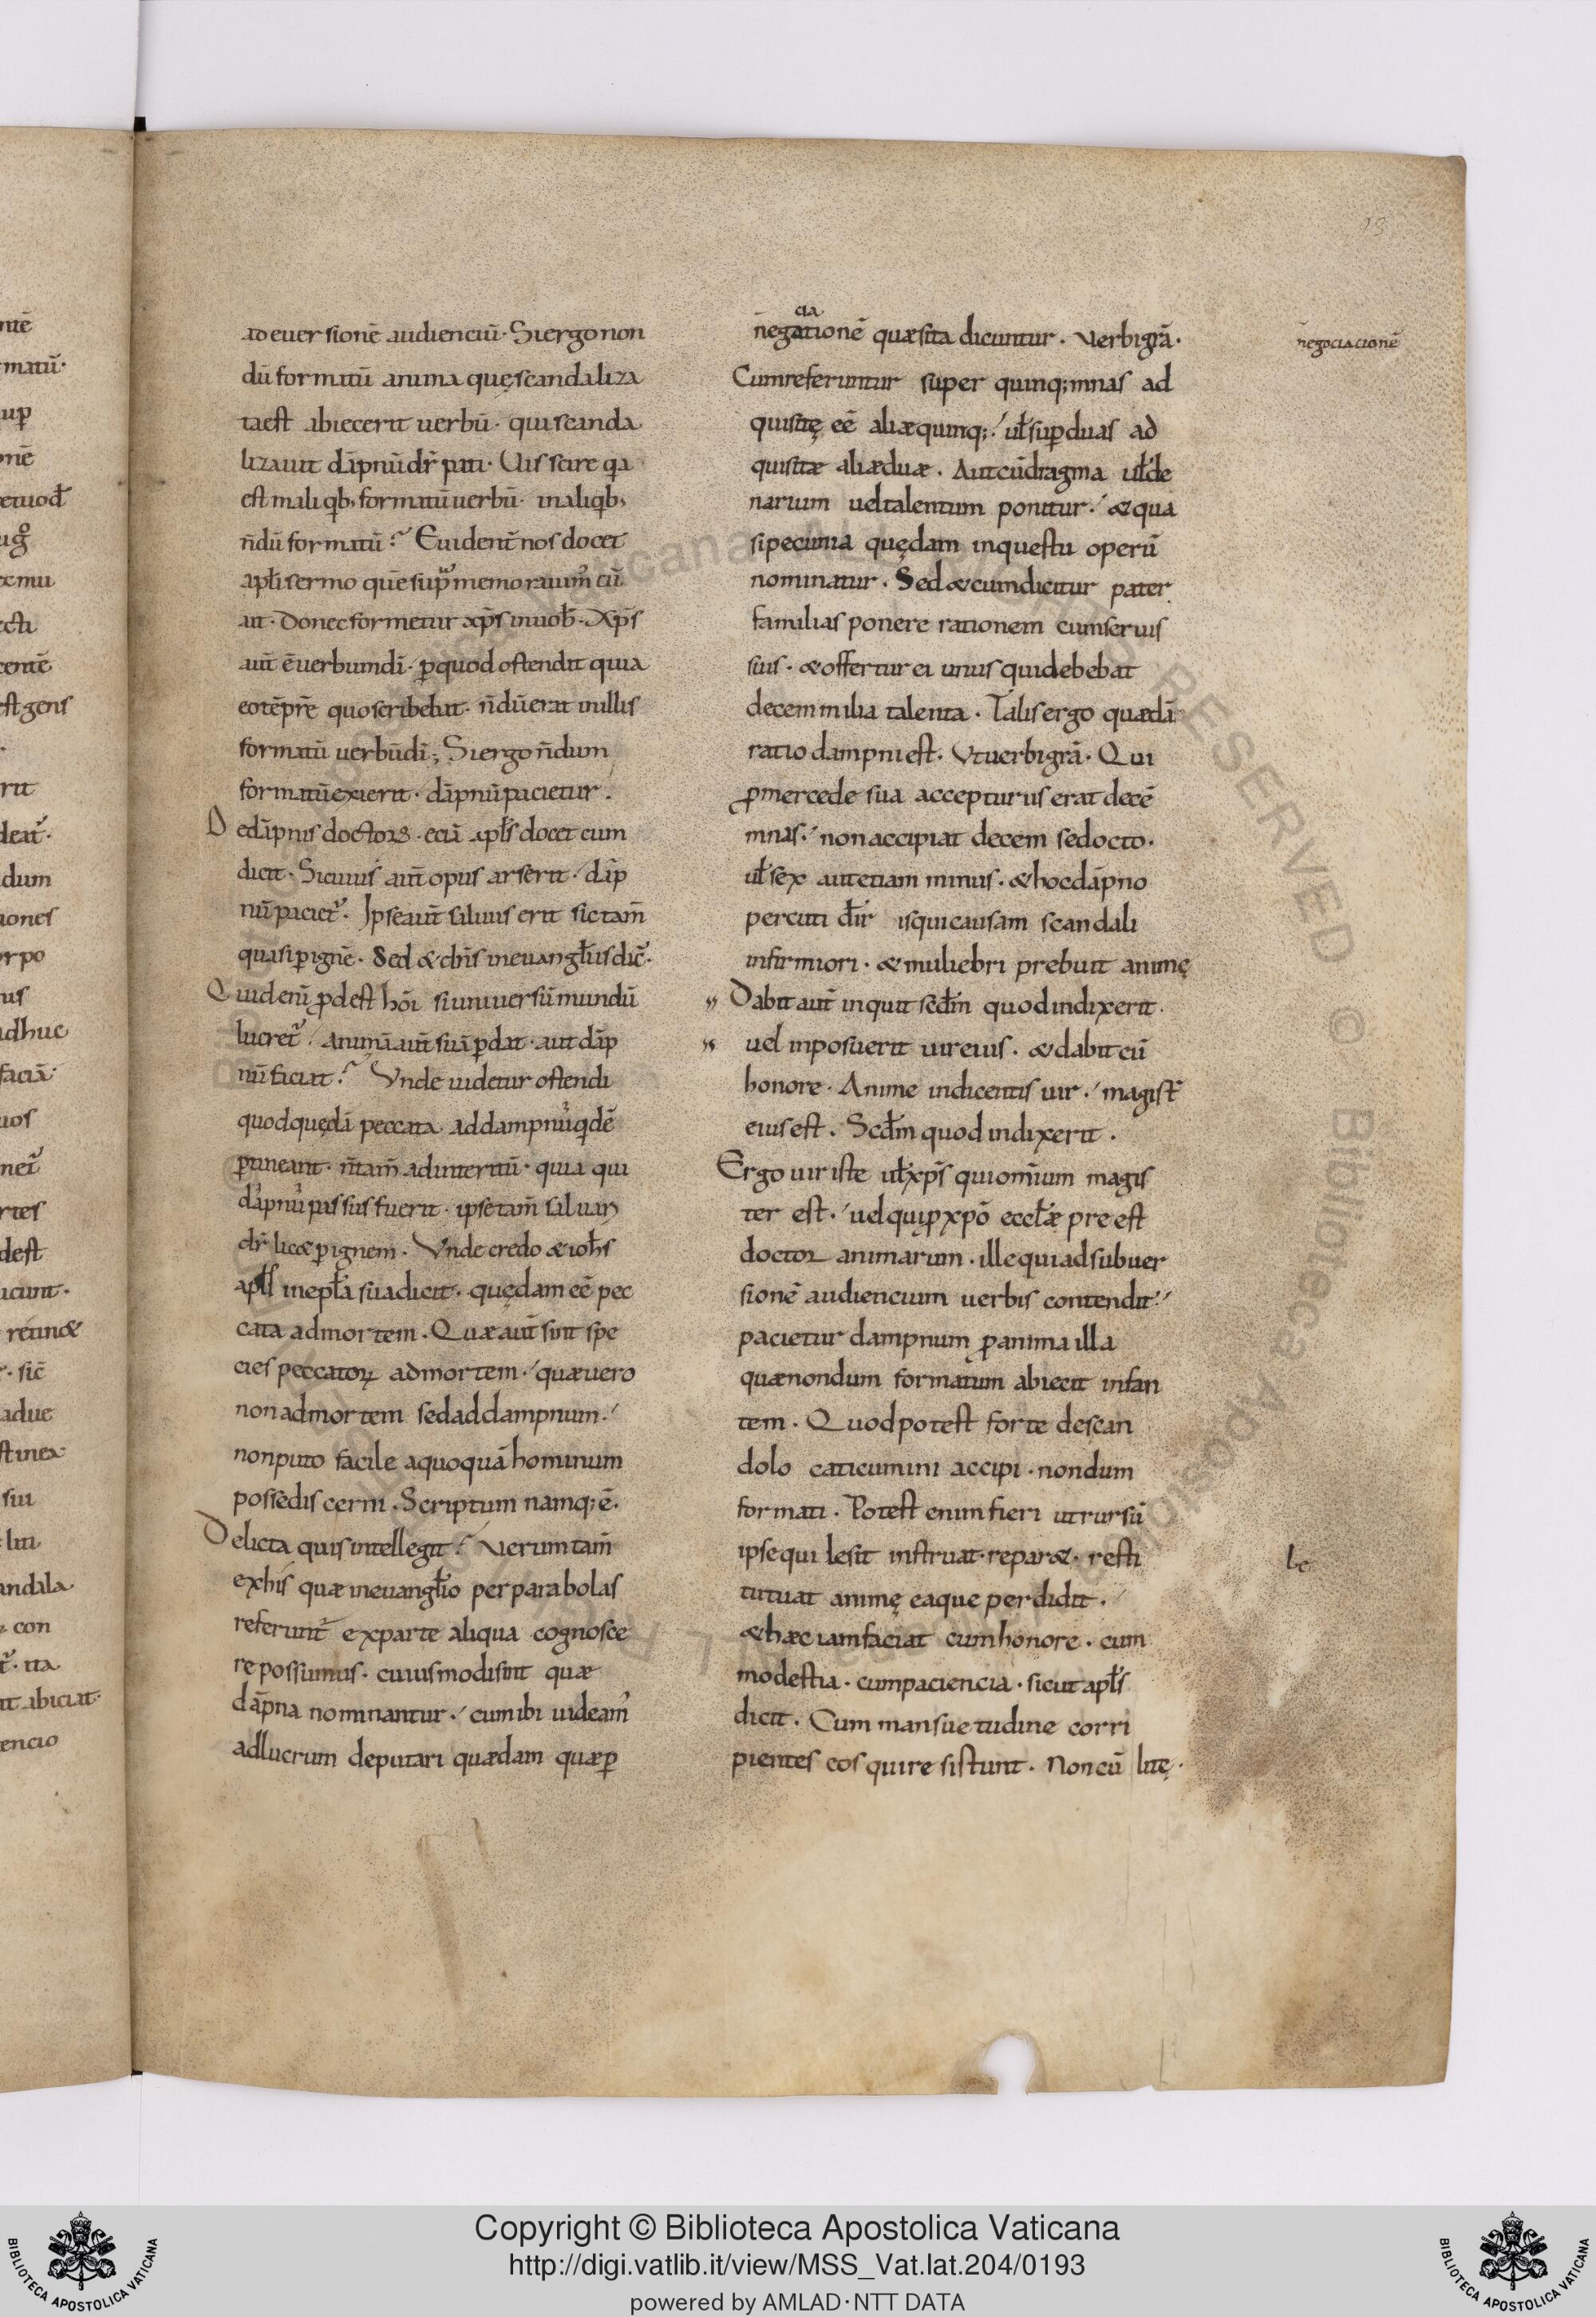 ntē
matū·
up̄
onē
&uod̄
ug̊
exmu
ecti
centē
est gens
·
rit
deat᷒·
dum
iones
orpo
rus
adhuc
faciā·
uos
net᷒
rtes
dest
icunt·
retin&
· sic̄
adue
stinex
sui
liti
andala
con
t᷒· ita
at abiciat·
encio
ad euersionē audienciū· Si ergo non
dū formatū anima quę scandaliza
ta est abiecerit uerbū· qui scanda
lizauit dāpnū dr̄ pati· Uis scire q̄a
est in aliqb; formatū uerbū· in aliqb;
n̄dū formatū? Euident̄ nos docet
apłi sermo quē sup᷒ memorauim᷒ cū
ait· Donec formetur xp̄s in uob̄· Xp̄s
aūt ē uerbum dī· p̱ quod ostendit quia
eo tēpr̄e quo scribebat· n̄dū erat in illis
formatū uerbū dī; Si ergo n̄dum
formatū exierit· dāpnū pacietur.
De dāpnis doctoꝝ· eciā apłs docet cum
dicit· Si cuius aūt opus arserit·/ dāp
nū paciet᷒. Ipse aūt saluus erit sic tam̄
quasi p̱ ignē· Sed & dn̄s in euangłiis dic̄·
Quid enī ꝓdest hōi si uniuersū mundū
lucret᷒·/ animā aūt suā p̱dat· aut dāp
nū faciat? Unde uidetur ostendi
quod quędā peccata ad dampnū q̇dē
p̱tineant· n̄ tam̄ ad interitū· quia qui
dāpnū passus fuerit· ipse tam̄ saluari
dr̄ lic& p̱ ignem. Unde credo & ioh̄s
apłs in epła sua dicit· quędam eē pec
cata ad mortem. Quæ aūt sint spe
cies peccatoꝝ ad mortem·/ quæ uero
non ad mortem sed ad dampnum·/
non puto facile a quoquā hominum
posse discerni. Scriptum namq; ē·
Delicta quis intellegit? Uerum tam̄
ex his quæ in euangłio per parabolas
referunt᷒ ex parte aliqua cognosce
re possumus· cuiusmodi sint quæ
dāpna nominantur·/ cum ibi uideam᷒
ad lucrum deputari quædam quæ p̱
cia
negationē quæsita dicuntur. Uerbi grā·
Cum referuntur super quinq; mnas ad
quisitę eē aliæ quinq;·/ uł sup̱ duas ad
quisitæ aliæ duæ. Aut cū dragma uł de
narium uel talentum ponitur·/ & qua
si pecunia quędam in questu operū
nominatur. Sed & cum dicitur pater
familias ponere rationem cum seruis
suis· & offertur ei unus qui debebat
decem milia talenta. Talis ergo quædā
ratio dampni est. Ut uerbi grā· Qui
ꝓ mercede sua accepturus erat decē
mnas·/ non accipiat decem sed octo·
uł sex aut etiam minus· & hoc dāpno
percuti dr̄ is qui causam scandali
infirmiori· & muliebri prebuit animę
" Dabit aūt inquit sed̄m quod indixerit·
" uel inposuerit uir eius. & dabit cū
honore. Anime indicentis uir·/ magist᷒
eius est. Scd̄m quod indixerit.
Ergo uir iste uł xp̄s qui omīum magis
ter est·/ uel qui ꝓ xp̄o eccłæ preest
doctor animarum· ille qui ad subuer
sionē audiencium uerbis contendit·/
pacietur dampnum ꝓ anima illa
quæ nondum formatum abiecit infan
tem. Quod potest forte de scan
dolo caticumini accipi· nondum
formati. Potest enim fieri ut rursū
ipse qui lesit instruat· repar&· resti
tutuat animę ea que perdidit·/
& hæc iam faciat cum honore· cum
modestia· cum paciencia· sicut apłs
dicit. Cum mansuetudine corri
pientes eos qui resistunt. Non cū litę·
negociacionē
Le
Copyright © Biblioteca Apostolica Vaticana
http://digi.vatlib.it/view/MSS_Vat.lat.204/0193
powered by AMLAD·NTT DATA
BIBLIOTECA APOSTOLICA VATICANA
BIBLIOTECA APOSTOLICA VATICANA